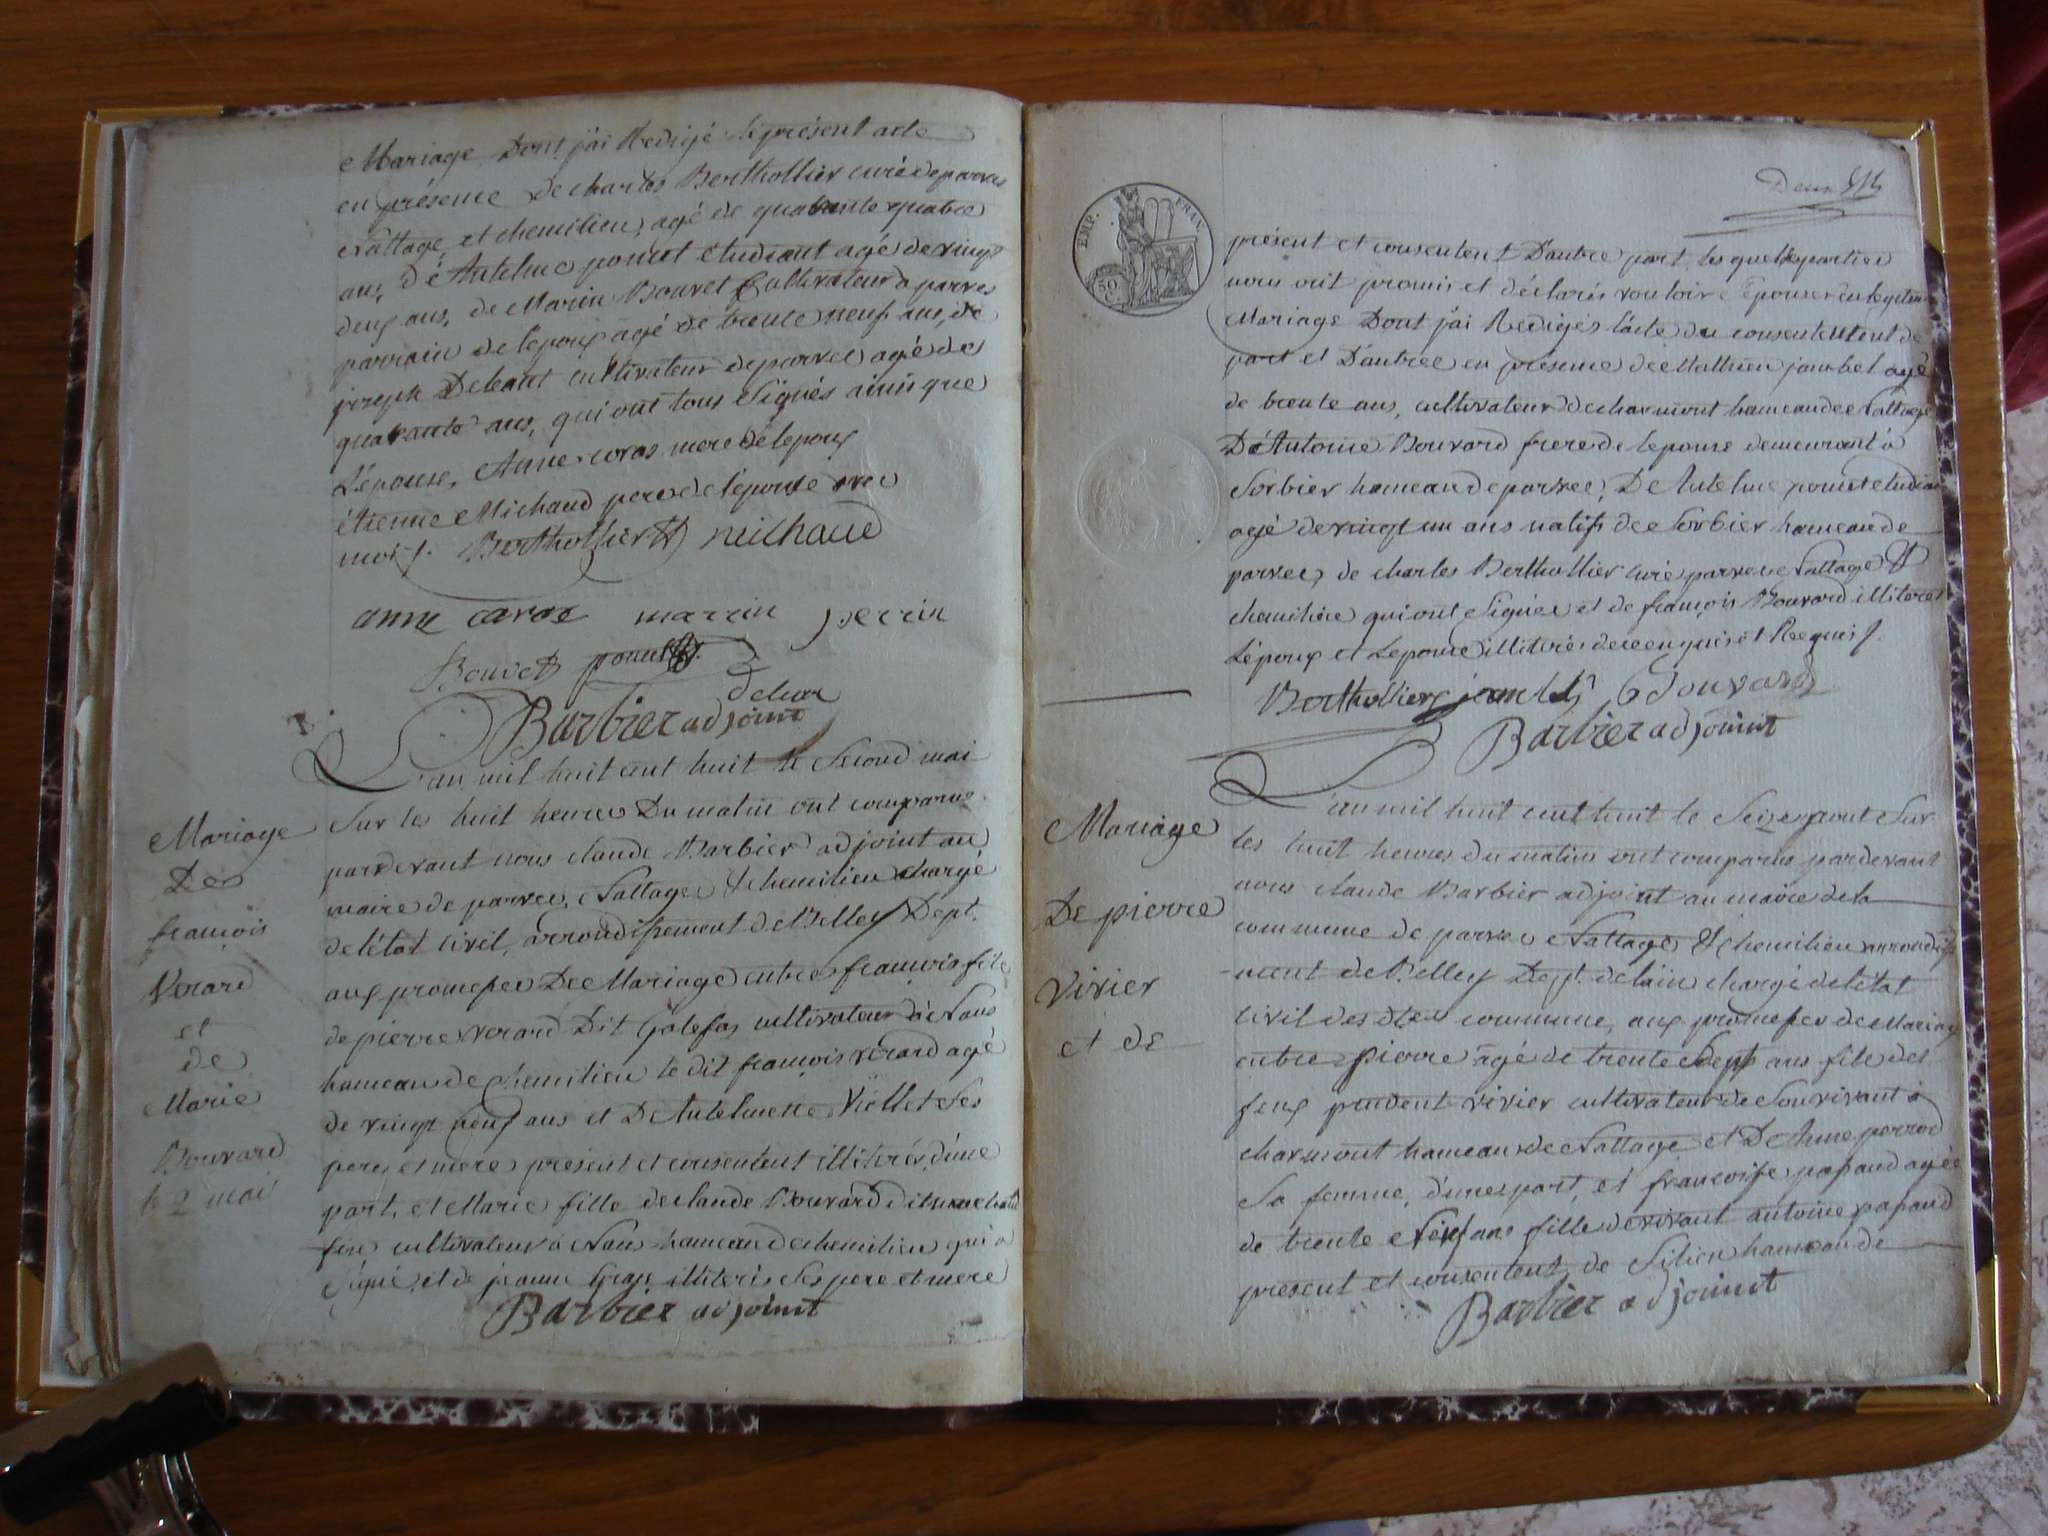 Mariage Dont j'ai Redigé le présent acte
en présence de charles Berthollier curé de parves
Nattage et chemilieu, agé de quarante quatre
ans, d'Antelme pomet étudiant agé de vingt
deux ans, de Marin Bouvet Cultivateur à parves
parrain de lepoux agé de trente neuf ans, de
joseph cultivateur de parves agé de
quarante ans, qui ont tous Signés ainsi que
L'épouse, Anne mere de lepoux
étienne Michaud pere de l'épouse avec
moi Berthollier michaud
anne marrin perrin
Bouvet
Barbier adjoint
L'an mil huit cent huit le Second mai
Sur les huit heures Du matin ont comparus
pardevant nous claude Barbier adjoint au
maire de parves, Nattage & chemilieu chargé
de l'état civil, arrondissement de Belley Dept.
aux promesses De Mariage entre françois fils
de pierre verard Dit cultivateur à Nans
hameau de chemilieu le dit françois verard agé
de vingt neuf ans et D'Antelmette Viollet Ses
pere et mere présent et consentent illiterés, d'une
part, et Marie fille de claude Bouvard dit
fin cultivateur à Nans hameau de chemilieu qui a
Signé, et de jeanne illiteris Ses pere et mere
Barbier adjoint
Mariage
De
françois
Verard
et
de
Marie
Bouvard
le 2 mai
EMP. FRAN.
50
C.
présent et consentent D'autre part, les quelles parties
nous ont promis et déclarés vouloir épouser en legitime
Mariage Dont j'ai Rediges l'acte du consentement de
part et D'autre en présence de Mathieu agé
de trente ans, cultivateur de charmont hameau de Nattage
D'Antoine Bouvard frere de lepouse demeurant à
Sorbier hameau de parves, De Antelme pomet etudiant
agé de vingt un ans natif de Sorbier hameau de
parves, de charles Berthollier curé parves Nattage &
chemilieu qui ont Signes et de françois Bouvard illiteres
L'époux et Lepouse illiteres de ce enquis et Requis
Berthollier Bouvard
Barbier adjoint
L'an mil huit cent huit le Seize aout Sur
les huit heures du matin ont comparus pardevant
nous claude Barbier adjoint au maire de la
commune de parves Nattage & chemilieu arrondisse
ment de Belley Dept. de l'ain chargé de l'état
civil des dtes commune, aux promesses de Mariage
entre pierre agé de trente Sept ans fils de
feux prudent vivier cultivateur de Son vivant à
charmont hameau de Nattage et De Anne perrod
Sa femme, d'une part, et francoise papand agée
de trente Neuf ans fille de vivant antoine papand
présent et consentent, de Silien hameau de
Barbier adjoint
Mariage
De pierre
Vivier
et de